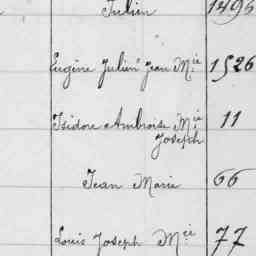 Julien 1496
Eugène Julien Jean Mie 1526
Isidore Ambroise Mie 11
Joseph
Jean Marie 66
Louis Joseph Mie 77